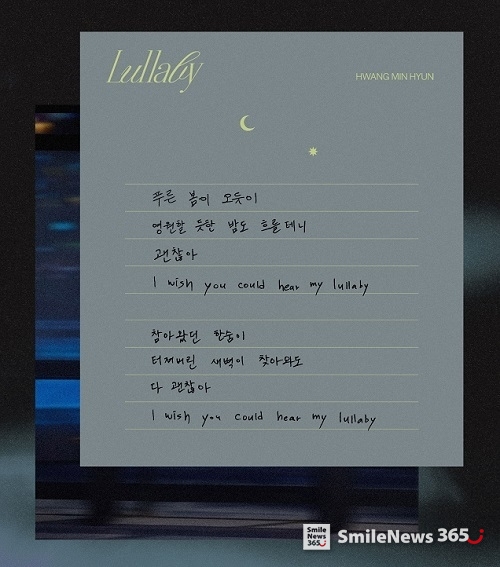 Lullaby
HWANG MIN HYUN
푸른 봄이 오듯이
영원할 듯한 밤도 흐를테니
괜찮아
I wish you could hear my lullaby
참아왔던 한숨이
터져버린 새벽이 찾아와도
다 괜찮아
I wish you could hear my lullaby
Smile
News
365
SmileNews 365